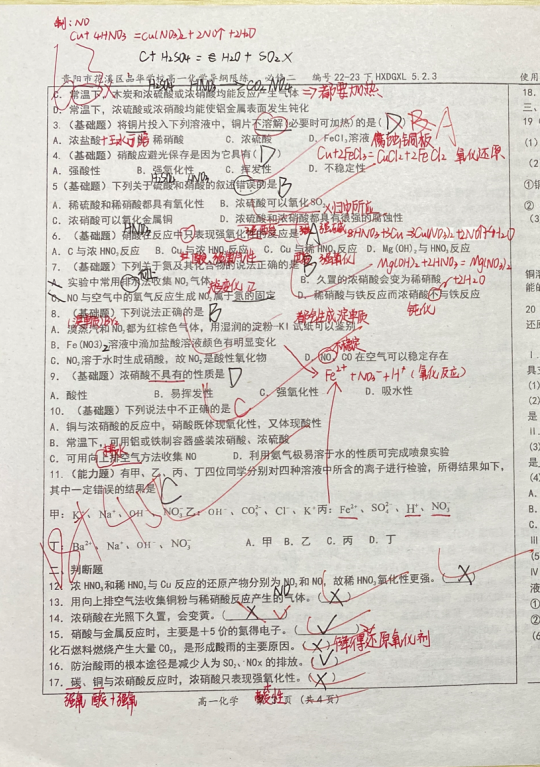 制：NO
Cu+4HNO₃=Cu(NO₃)₂+2NO↑+2H₂O
C+H₂SO₄= H₂O+SO₂X
贵阳市花溪区 华学校高一化学 必修二 编号 22-23 下 HXDGXL 5.2.3
C. 常温下，木炭和浓硫酸或浓硝酸均能反应产生气体 ⇒都要加热
D. 常温下，浓硫酸或浓硝酸均能使铝金属表面发生钝化
3.（基础题）将铜片投入下列溶液中，铜片不溶解(必要时可加热)的是( D B A
A. 浓盐酸 稀硝酸 C. 浓硫酸 D. FeCl₃溶液 腐蚀铜板
Cu+2FeCl₃=CuCl₂+2FeCl₂ 氧化还原
4.（基础题）硝酸应避光保存是因为它具有( D
A. 强酸性 B. 强氧化性 C. 挥发性 D. 不稳定性
5（基础题）下列关于硫酸和硝酸的叙述错误的是( B
A. 稀硫酸和稀硝酸都具有氧化性 B. 浓硫酸可以氧化SO₂ X
C. 浓硝酸可以氧化金属铜 D. 浓硫酸和浓硝酸都具有很强的腐蚀性
（基础题）硝酸在反应中只表现强氧化性的反应是 A
A. C 与浓 HNO₃反应 B. Cu 与浓 HNO₃反应 C. Cu 与稀 HNO₃反应 D. Mg(OH)₂与 HNO₃反应
Mg(OH)₂+2HNO₃=Mg(NO₃)₂
+2H₂O
7.（基础题）下列关于氮及其化合物的说法正确的是 B
实验中常用排水法收集NO₂气体 B. 久置的浓硝酸会变为稀硝酸
NO 与空气中的氧气反应生成NO₂属于氮的固定 D. 稀硝酸与铁反应而浓硝酸不与铁反应
钝化
8.（基础题）下列说法正确的是 B
A. 溴蒸汽和 NO₂都为红棕色气体，用湿润的淀粉-KI 试纸可以鉴别
B. Fe(NO3)₂溶液中滴加盐酸溶液颜色有明显变化
C. NO₂溶于水时生成硝酸，故 NO₂是酸性氧化物 D. NO、CO 在空气可以稳定存在
不稳定
Fe²⁺+NO₃⁻+H⁺（氧化反应）
9.（基础题）浓硝酸不具有的性质是 D
A. 酸性 B. 易挥发性 C. 强氧化性 D. 吸水性
10.（基础题）下列说法中不正确的是 C
A. 铜与浓硝酸的反应中，硝酸既体现氧化性，又体现酸性
B. 常温下，可用铝或铁制容器盛装浓硝酸、浓硫酸
C. 可用向上排空气方法收集 NO D. 利用氨气极易溶于水的性质可完成喷泉实验
11.（能力题）有甲、乙、丙、丁四位同学分别对四种溶液中所含的离子进行检验，所得结果如下，
其中一定错误的结果是 C
甲：K⁺、Na⁺、OH⁻、NO₃⁻ 乙：OH⁻、CO₃²⁻、Cl⁻、K⁺ 丙：Fe²⁺、SO₄²⁻、H⁺、NO₃⁻
丁：Ba²⁺、Na⁺、OH⁻、NO₃⁻ A. 甲 B. 乙 C. 丙 D. 丁
二、判断题
12. 浓 HNO₃和稀 HNO₃与 Cu 反应的还原产物分别为 NO₂和 NO，故稀 HNO₃氧化性更强。( X )
13. 用向上排空气法收集铜粉与稀硝酸反应产生的气体。( X )
NO
14. 浓硝酸在光照下久置，会变黄。( X
15. 硝酸与金属反应时，主要是+5 价的氮得电子。( √ )
化石燃料燃烧产生大量 CO₂，是形成酸雨的主要原因。( X )
16. 防治酸雨的根本途径是减少人为 SO₂、NOx 的排放。( √ )
17. 碳、铜与浓硝酸反应时，浓硝酸只表现强氧化性。( X )
强氧 酸+强氧 酸性
高一化学 页（共 4 页）